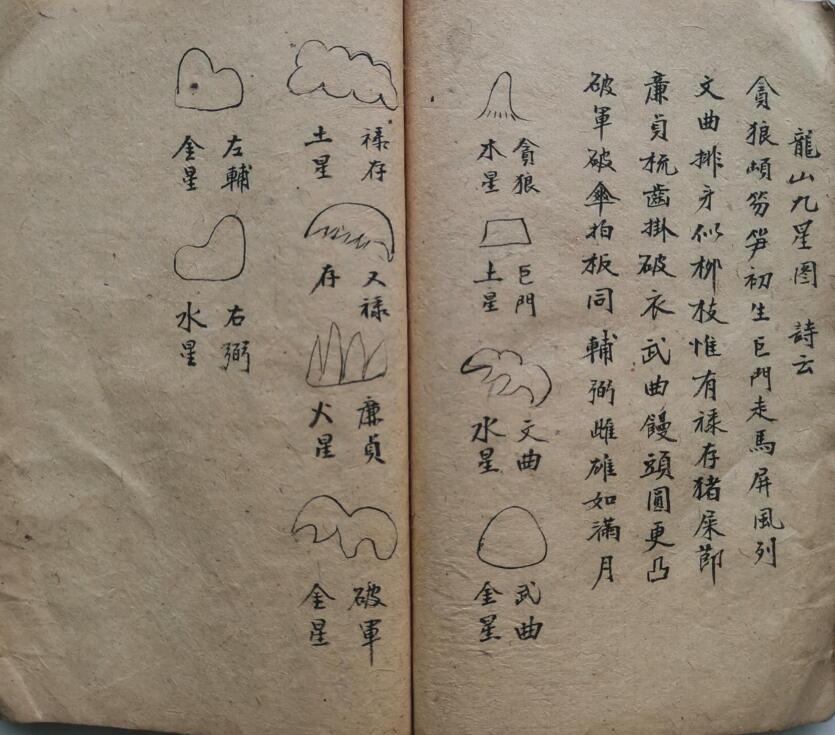 龍山九星圖 詩云
貪狼頓笏笋初生巨門走馬屏風列
文曲排牙似柳枝惟有禄存猪屎節
廉貞梳齒掛破衣武曲饅頭圓更凸
破軍破傘拍板同輔弼雌雄如滿月
貪狼
水星
巨門
土星
文曲
水星
武曲
金星
禄存
土星
又禄
存
廉貞
火星
破軍
金星
左輔
金星
右弼
水星